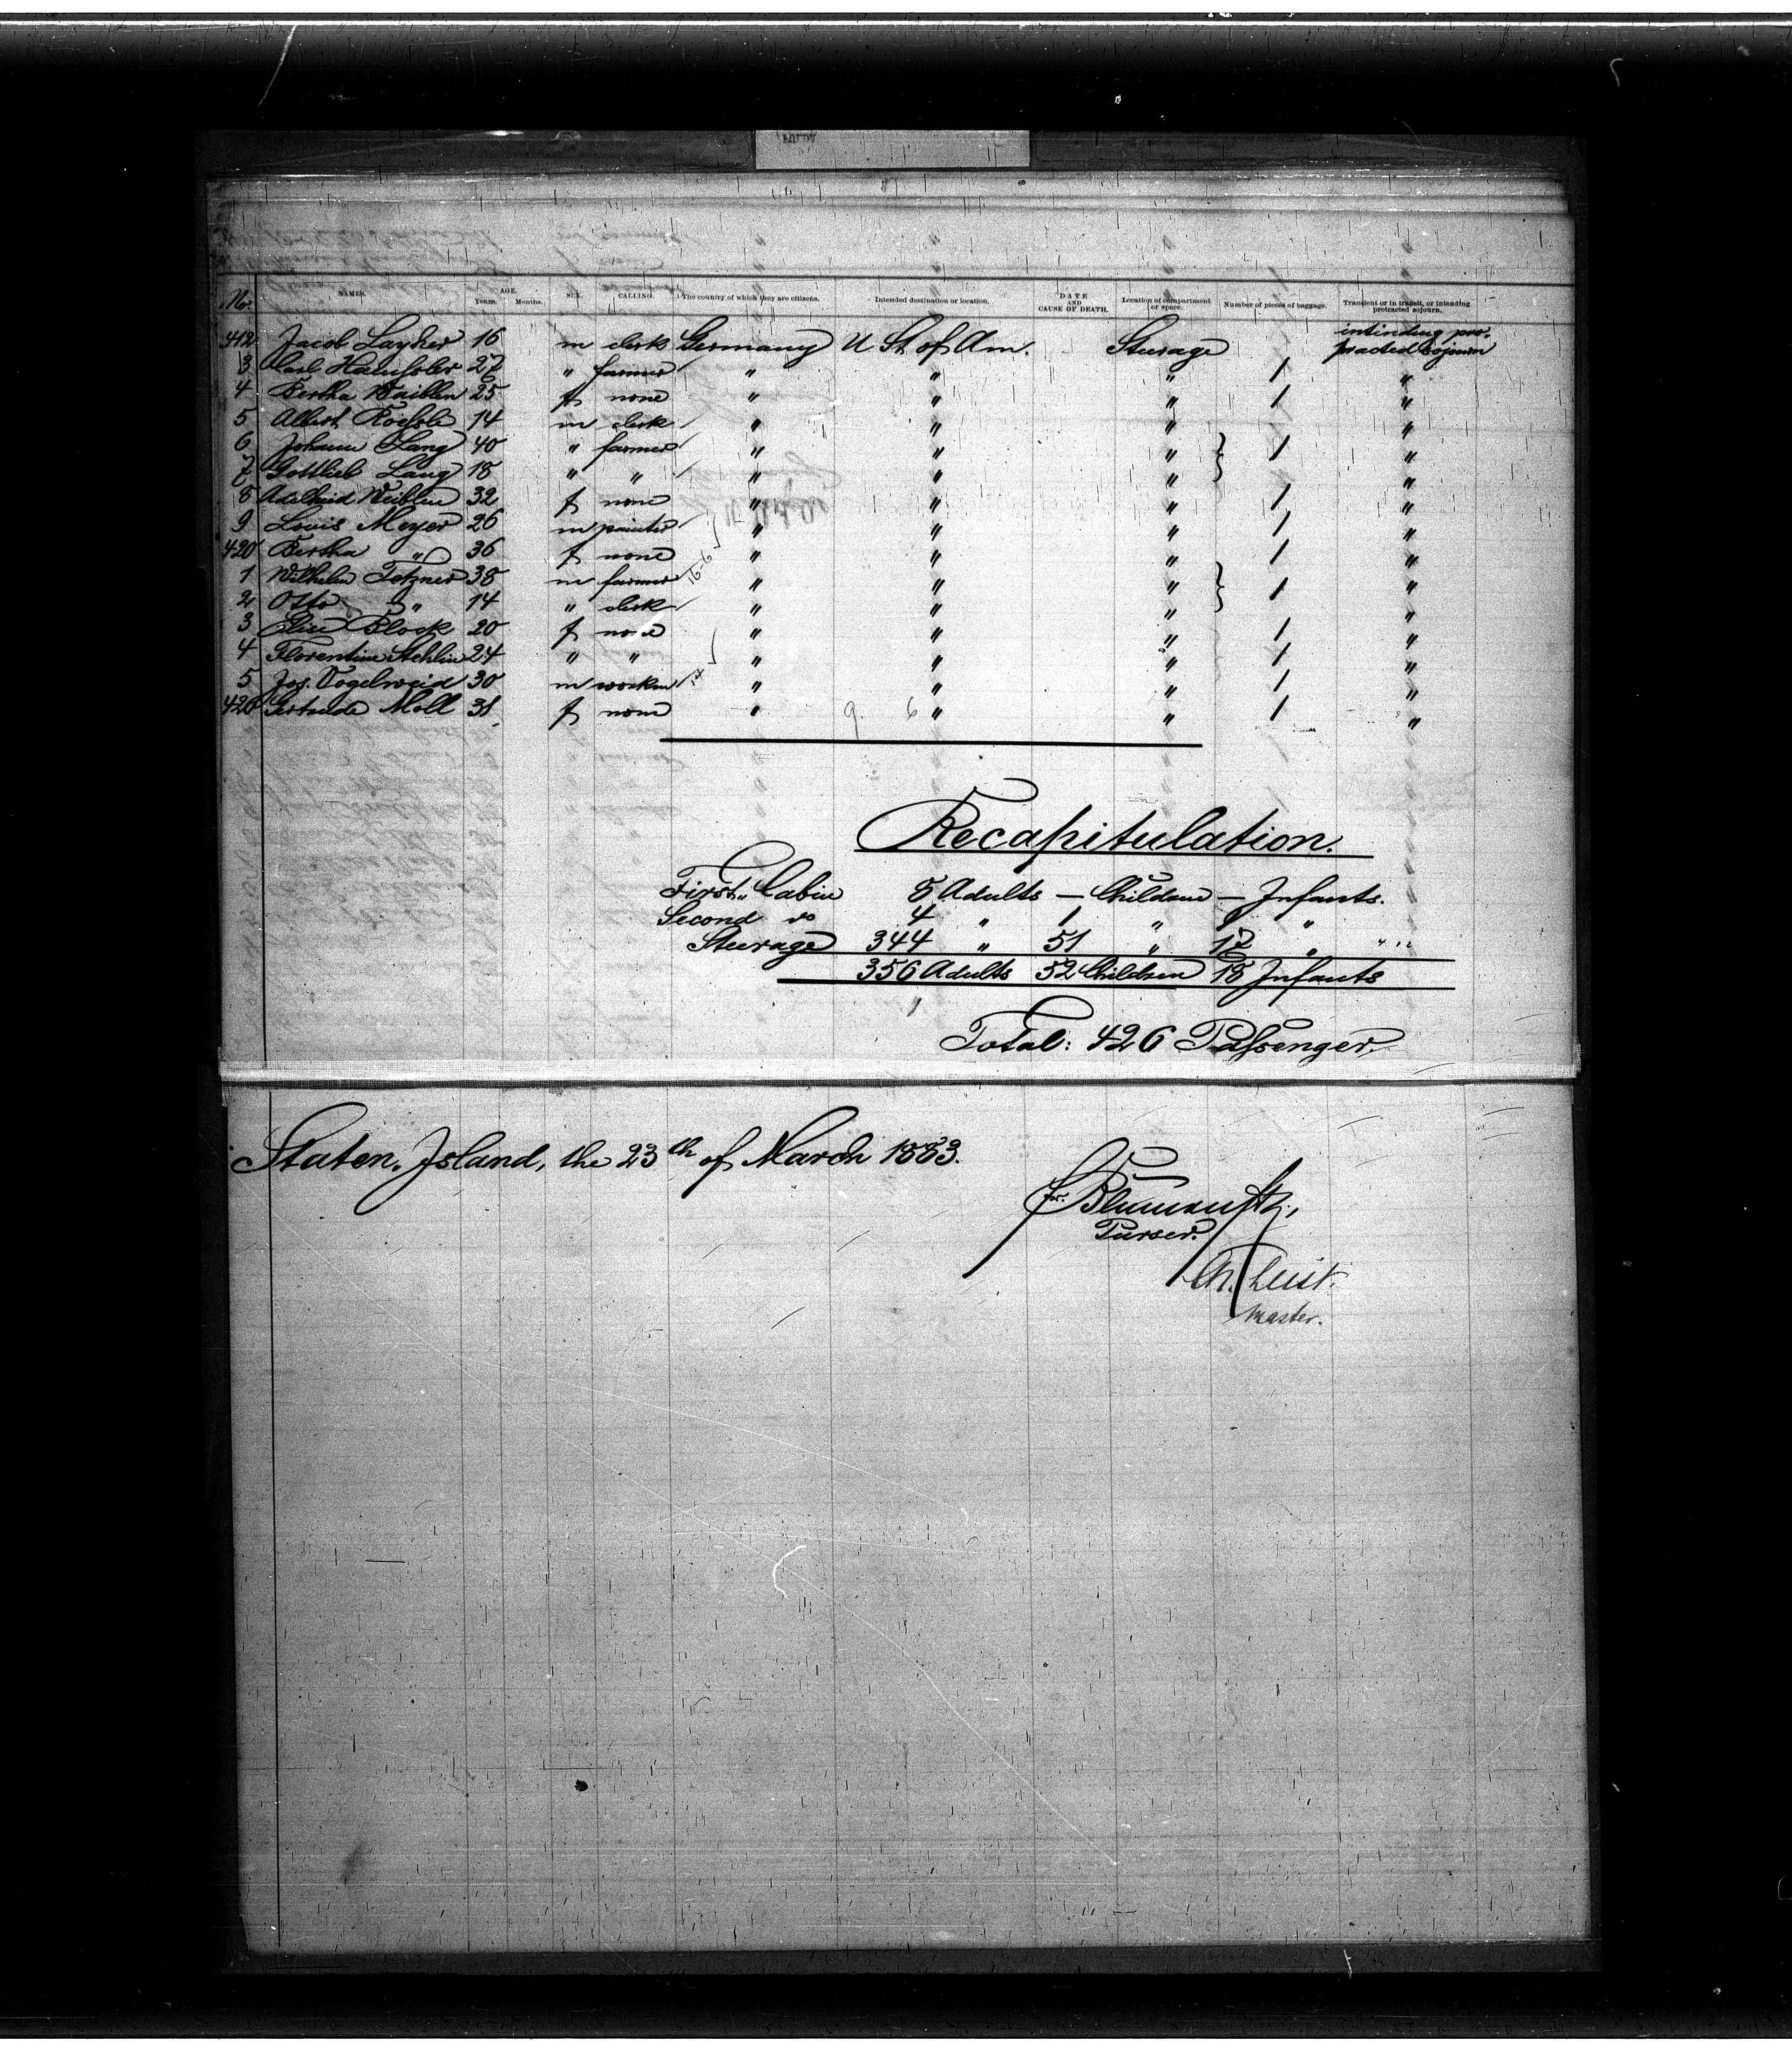 FULDA
No. NAMES. AGE. Years. Months. SEX. CALLING. The country of which they are citizens. Intended destination or location. DATE AND CAUSE OF DEATH. Location of compartment or space. Number of pieces of baggage. Transient or in transit, or intending protracted sojourn.
412 Jacob Layher 16 m clerk Germany U St. of Am. Steerage intinding pro- tracted sojourn
3 Carl Haussler 27 " farmer " " " 1 "
4 Bertha Waiblen 25 f none " " " 1 "
5 Albert Roessle 14 m clerk " " " "
6 Johann Lang 40 " farmer " " " } 1 "
7 Gottlieb Lang 18 " " " " " "
8 Adelheid Weiblen 32 f none " " " 1 "
9 Louis Meyer 26 m painter " " " 1 "
420 Bertha " 36 f none " " " 1 "
1 Wilhelm Totzner 38 m farmer " " " } 1 "
2 Otto " 14 " clerk " " " "
3 Elise Block 20 f none " " " 1 "
4 Florentine Stehlin 24 " " " " " 1 "
5 Jos. Vogelweid 30 m workm " " " 1 "
426 Gertrude Moll 31 f none " 9. 6 " " 1 "
Recapitulation.
First Cabin 8 Adults — Children — Infants.
Second do 4 " 1 " 1 "
Steerage 344 " 51 " 17 "
356 Adults 52 Children 18 Infants
Total: 426 Passenger.
Staten Island, the 23th of March 1883.
Purser.
Ch. Leist.
Master.